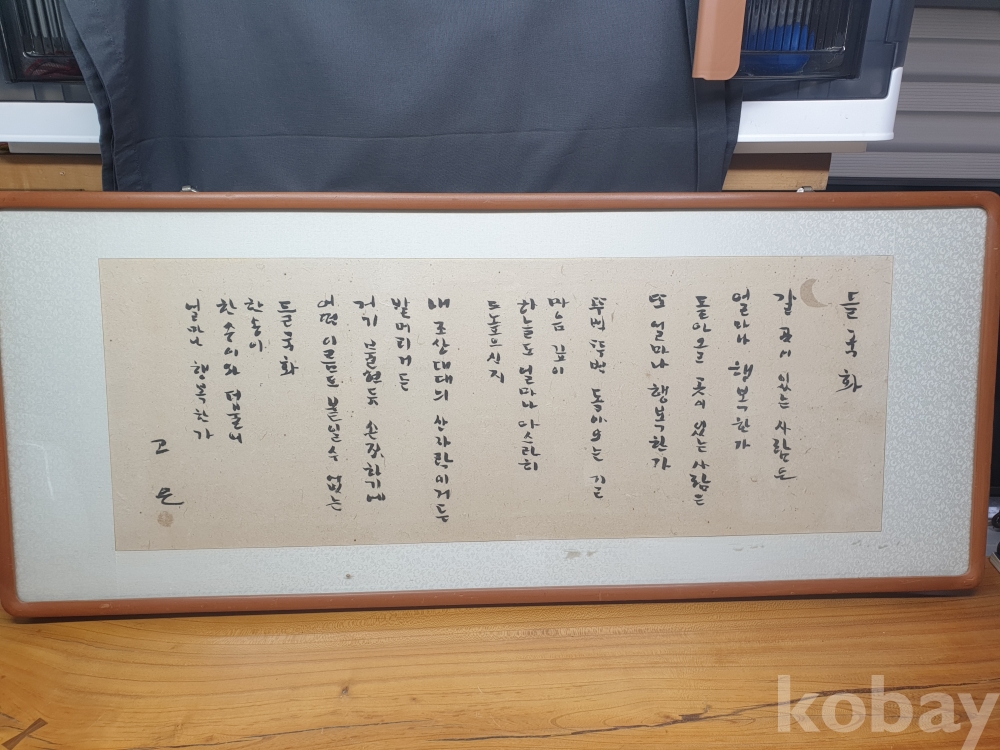 들국화
갈 곳이 있는 사람은
얼마나 행복한가
돌아올 곳이 있는 사람은
또 얼마나 행복한가
뚜벅 뚜벅 돌아오는 길
만큼 깊이
하늘도 얼마나 아스라히
드높으신지
내 조상대대의 산자락이거든
밭머리거든
거기 불현듯 손짓하기에
어떤 이름도 붙일 수 없는
들국화
한송이
한 송이와 더불어
얼마나 행복한가
고 은
kobay